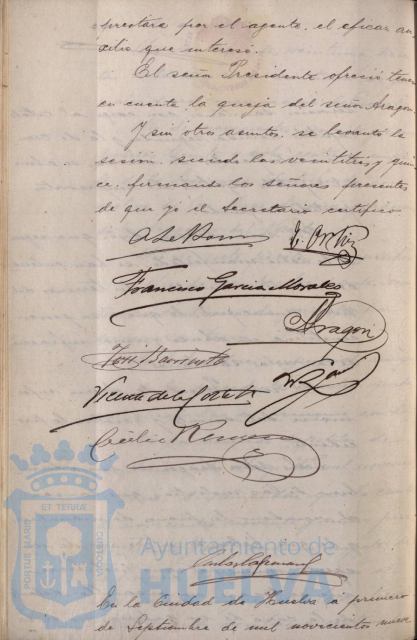 prestara por el agente, el eficaz au-
xilio que interesó.
El señor Presidente ofreció tener
en cuenta la queja del señor Aragon.
Y sin otros asuntos, se levantó la
sesión, siendo las veintitres y quin
ce, firmando los señores presentes
de que yo el Secretario certifico
Francisco Garcia Morales
Aragon
José Barrienta
Vicente de la Corte
PORTUS MARIS
ET TERRÆ
CUSTODIA
Ayuntamiento de
HUELVA
En la Ciudad de Huelva a primero
de Septiembre de mil novecientos nueve